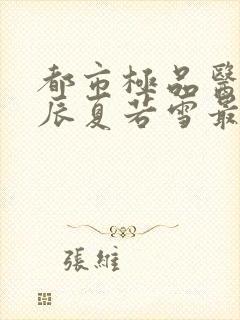 都市極品醫
辰夏若雪最
張維